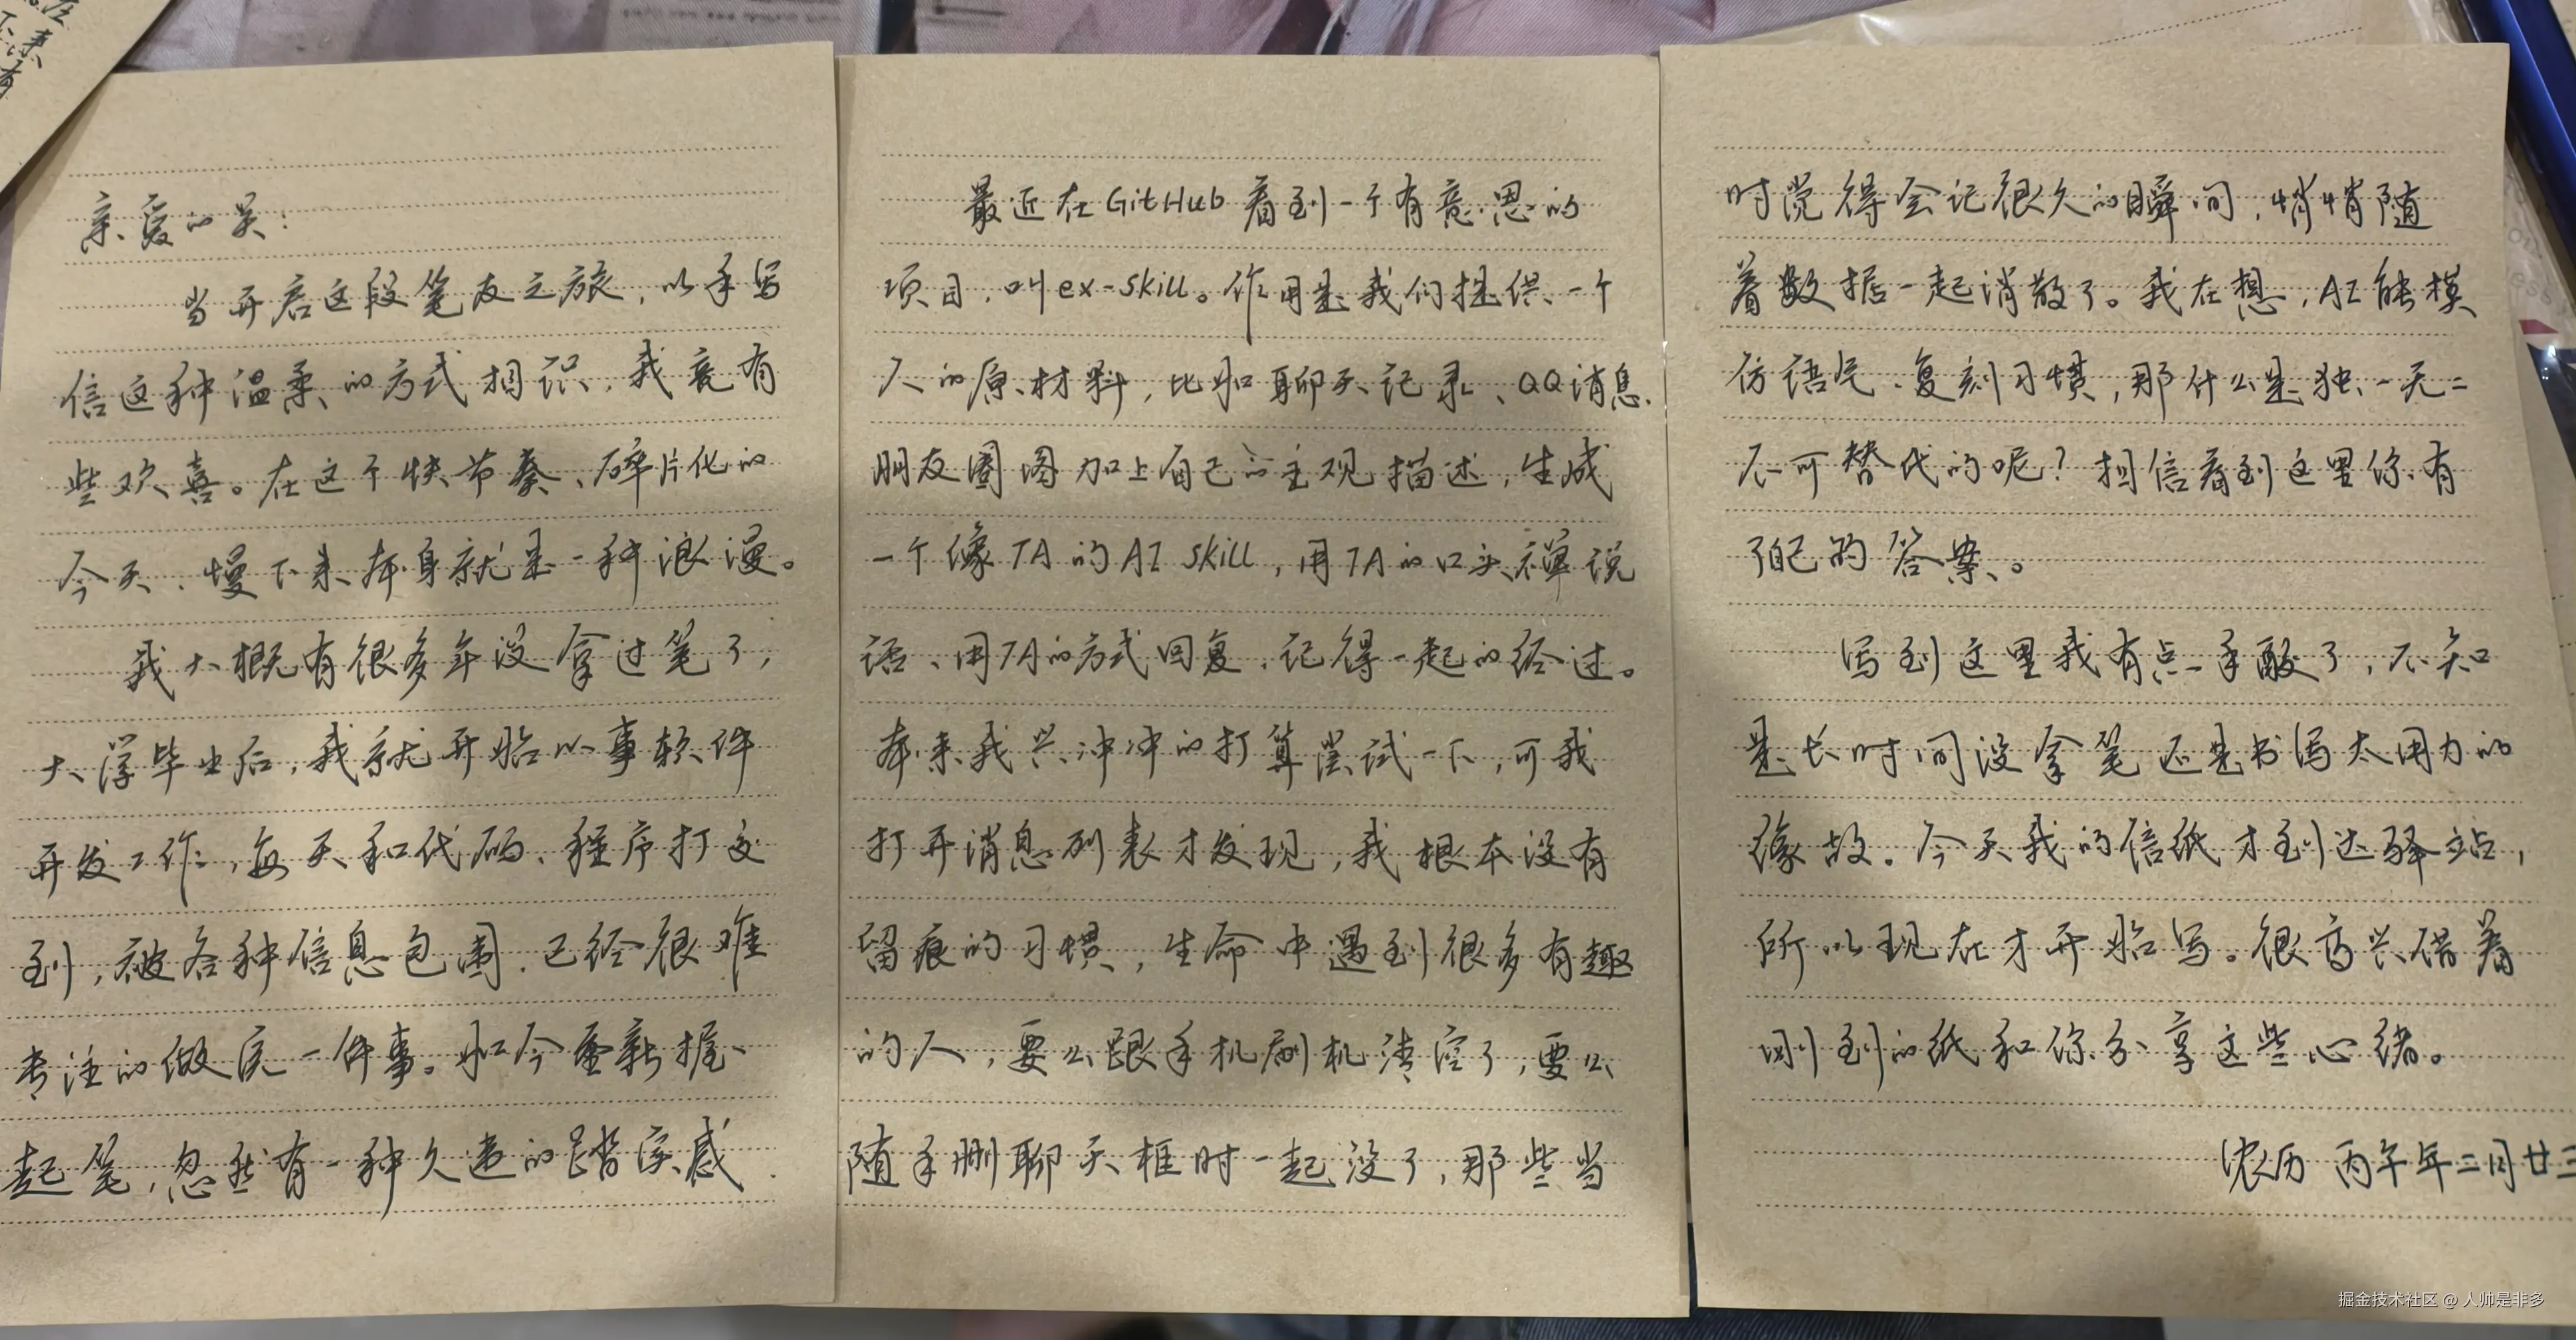 亲爱的吴：
当开启这段笔友之旅，以手写
信这种温柔的方式相识，我竟有
些欢喜。在这个快节奏、碎片化的
今天、慢下来本身就是一种浪漫。
我大概有很多年没拿过笔了，
大学毕业后，我就开始从事软件
开发工作，每天和代码、程序打交
到，被各种信息包围，已经很难
专注的做完一件事。如今重新握
起笔，忽然有一种久违的踏实感.
最近在GitHub看到一个有意思的
项目，叫ex-skill。作用是我们提供一个
人的原材料，比如聊天记录、QQ消息、
朋友圈图加上自己的主观描述，生成
一个像TA的AI skill，用TA的口头禅说
话、用TA的方式回复，记得一起的经过。
本来我兴冲冲的打算尝试一下，可我
打开消息列表才发现，我根本没有
留痕的习惯，生命中遇到很多有趣
的人，要么跟手机刷机清空了，要么
随手删聊天框时一起没了，那些当
时觉得会记很久的瞬间，悄悄随
着数据一起消散了。我在想，AI能模
仿语气、复刻习惯，那什么是独一无二
不可替代的呢？相信看到这里你有
了自己的答案。
写到这里我有点手酸了，不知
是长时间没拿笔还是书写太用力的
缘故。今天我的信纸才到达驿站，
所以现在才开始写。很高兴借着
刚到的纸和你分享这些心绪。
农历 丙午年二月廿三
掘金技术社区 @ 人帅是非多